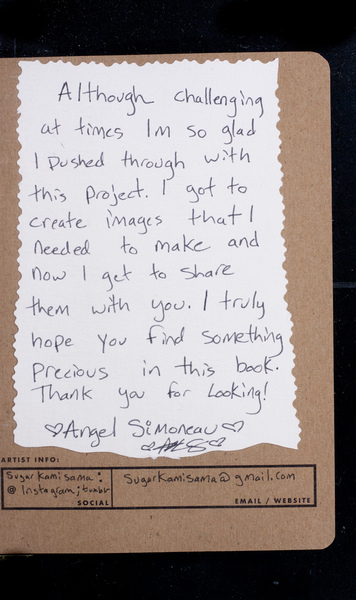 Although challenging
at times Im so glad
I pushed through with
this project. I got to
create images that I
needed to make and
now I get to share
them with you. I truly
hope you find something
Precious in this book.
Thank you for Looking!
♡Angel Simoneau♡
ARTIST INFO:
SugarKamisama:
@ Instagram; tumblr
SOCIAL
SugarKamisama@gmail.com
EMAIL / WEBSITE